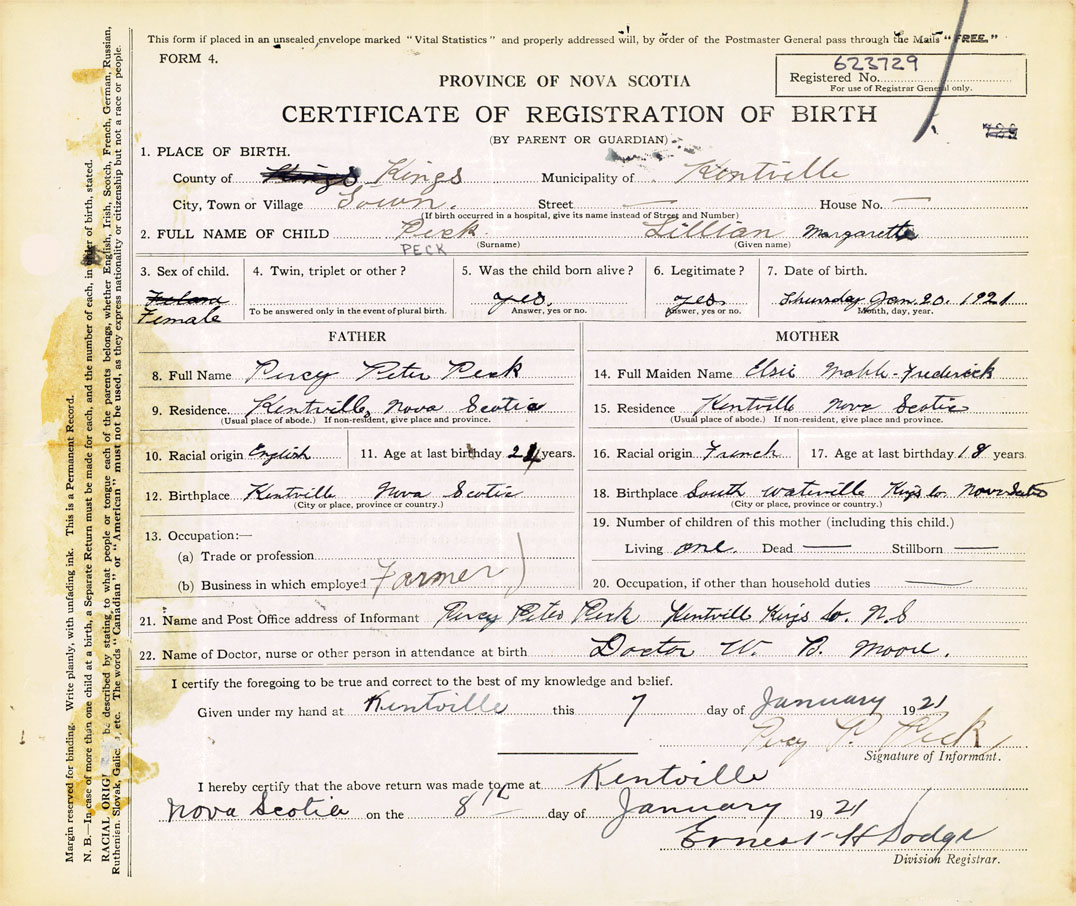 This form if placed in an unsealed envelope marked "Vital Statistics" and properly addressed will, by order of the Postmaster General pass through the Mails "FREE."
FORM 4.
623729
Registered No.
For use of Registrar General only.
PROVINCE OF NOVA SCOTIA
CERTIFICATE OF REGISTRATION OF BIRTH
(BY PARENT OR GUARDIAN)
1. PLACE OF BIRTH.
County of Kings Kings Municipality of Kentville
City, Town or Village Town. Street — House No. —
(If birth occurred in a hospital, give its name instead of Street and Number)
2. FULL NAME OF CHILD Peck. Lillian Margarette
PECK (Surname) (Given name)
3. Sex of child. 4. Twin, triplet or other? 5. Was the child born alive? 6. Legitimate? 7. Date of birth.
yes. yes Thursday Jan. 20. 1921
Female To be answered only in the event of plural birth. Answer, yes or no. Answer, yes or no. Month, day, year.
FATHER MOTHER
8. Full Name Percy Peter Peck 14. Full Maiden Name Elsie Mable Frederick
9. Residence. Kentville, Nova Scotia 15. Residence Kentville Nova Scotia
(Usual place of abode.) If non-resident, give place and province. (Usual place of abode.) If non-resident, give place and province.
10. Racial origin English 11. Age at last birthday 24 years. 16. Racial origin French 17. Age at last birthday 18 years.
12. Birthplace Kentville Nova Scotia 18. Birthplace South Waterville Kings Co. Nova Scotia
(City or place, province or country.) (City or place, province or country.)
13. Occupation:— 19. Number of children of this mother (including this child.)
(a) Trade or profession Living one. Dead — Stillborn —
(b) Business in which employed Farmer 20. Occupation, if other than household duties —
21. Name and Post Office address of Informant Percy Peter Peck Kentville Kings Co. N.S
22. Name of Doctor, nurse or other person in attendance at birth Doctor W. B. Moore.
I certify the foregoing to be true and correct to the best of my knowledge and belief.
Given under my hand at Kentville this 7 day of January 1921
Percy P. Peck
Signature of Informant.
I hereby certify that the above return was made to me at Kentville
Nova Scotia on the 8th day of January 1921
Ernest H Dodge
Division Registrar.
Margin reserved for binding. Write plainly, with unfading ink. This is a Permanent Record.
N. B.—In case of more than one child at a birth, a Separate Return must be made for each, and the number of each, in order of birth, stated.
RACIAL ORIG be described by stating to what people or tongue each of the parents belongs, whether English, Irish, Scotch, French, German, Russian,
Ruthenian, Slovak, Galic , etc. The words "Canadian" or "American" must not be used, as they express nationality or citizenship but not a race or people.